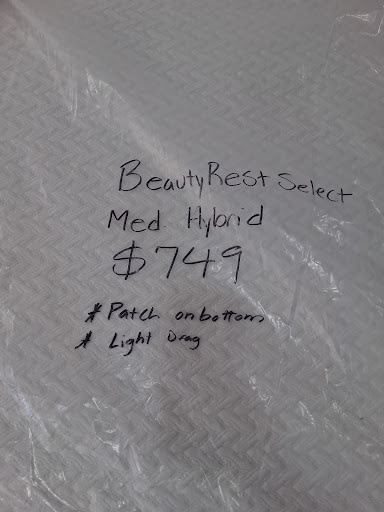 BeautyRest Select
Med Hybrid
$749
* Patch on bottom
* Light Drag